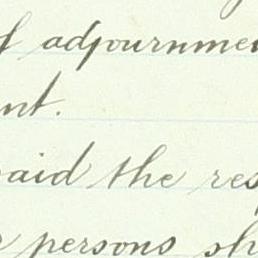 of adjournme
nt.
said the res
persons sh